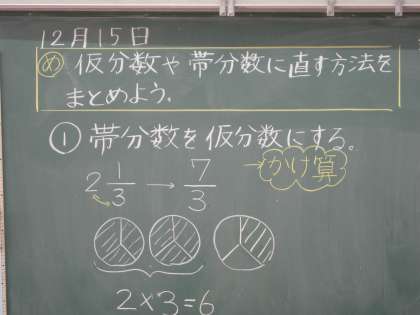 12月15日
め 仮分数や帯分数に直す方法を
まとめよう。
① 帯分数を仮分数にする。
2 1/3 → 7/3 → かけ算
2×3=6